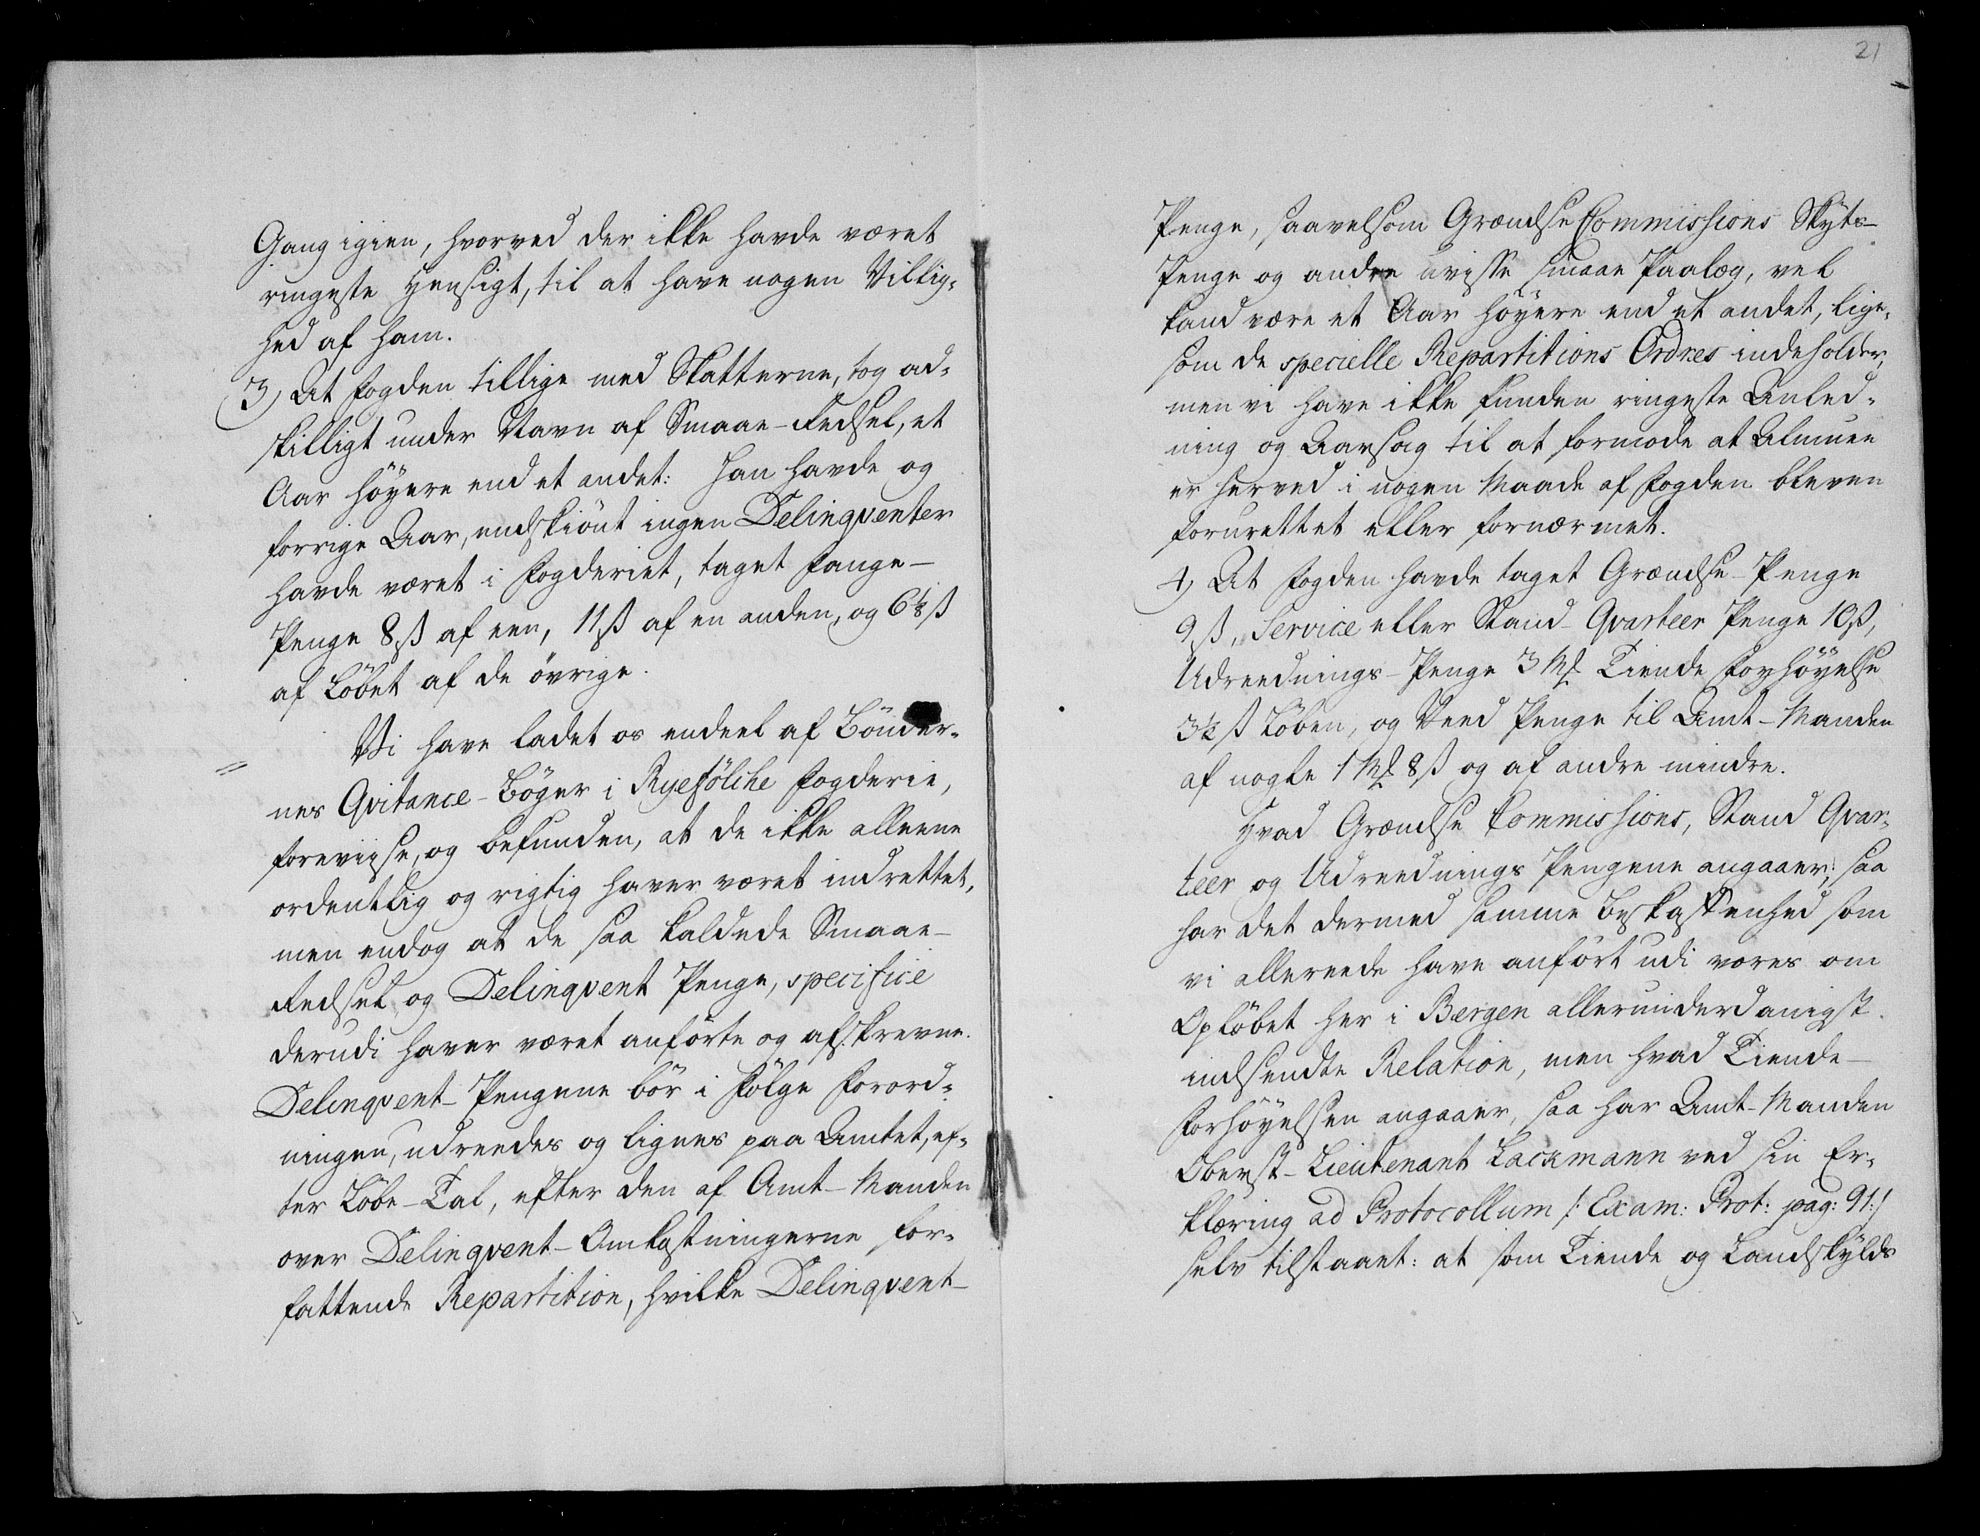 Gang igien, hvorved der ikke havde været
ringeste Hensigt, til at have nogen Villig-
hed af ham.
3, At Fogden tillige med Skatterne, tog ad-
skilligt under Navn af Smaae-Sedsel, et
Aar höyere end et andet: Han havde og
forrige Aar, endskiönt ingen Delinqventer
havde været i Fogderiet, taget Fange-
Penge 8 ß af een, 11 ß af en anden, og 6½ ß
af Löbet af de övrige.
Vi have ladet os endeel af Bönder-
nes Qvitance-Böger i Ryefölche Fogderie,
foreviise, og befunden, at de ikke alleene
ordentlig og rigtig haver været indrettet,
men endog at de saa kaldede Smaae-
Sedsel og Delinqvent Penge, specifice
derudi haver været anförte og afskrevne.
Delinqvent-Pengene bör i Fölge Forord-
ningen, udreedes og lignes paa Amtet, ef-
ter Löbe-Tal, efter den af Amt-Manden
over Delinqvent-Omkostningerne for-
fattende Repartition, hvilke Delinqvent-
21
Penge, saavelsom Grændse Commissions Skyts-
Penge og andre uvisse smaae Paalæg, vel
kand være et Aar höyere end et andet, lige-
som de specielle Repartitions Ordres indeholder,
men vi have ikke funden ringeste Anled-
ning og Aarsag til at formode at Almuen
er herved i nogen Maade af Fogden bleven
forurettet eller fornærmet.
4, At Fogden havde taget Grændse-Penge
9 ß, Service eller Stand-Qvarteer Penge 10 ß,
Udreednings-Penge 3 Mk Tiende Forhöyelse
3½ ß Löben, og Veed Penge til Amt-Manden
af nogle 1 Mk 8 ß og af andre mindre.
Hvad Grændse Commissions, Stand Qvar-
teer og Udreednings Pengene angaaer, saa
har det dermed samme Beskaffenhed som
vi allereede have anfört udi vores om
Oplöbet her i Bergen allerunderdanigst
indsendte Relation, men hvad Tiende-
Forhöyelsen angaaer, saa har Amt-Manden
Oberst-Lieutenant Lackmann ved sin Er-
klæring ad Protocollum /: Exam: Prot: pag: 91:/
selv tilstaaet: at som Tiende og Landskylds